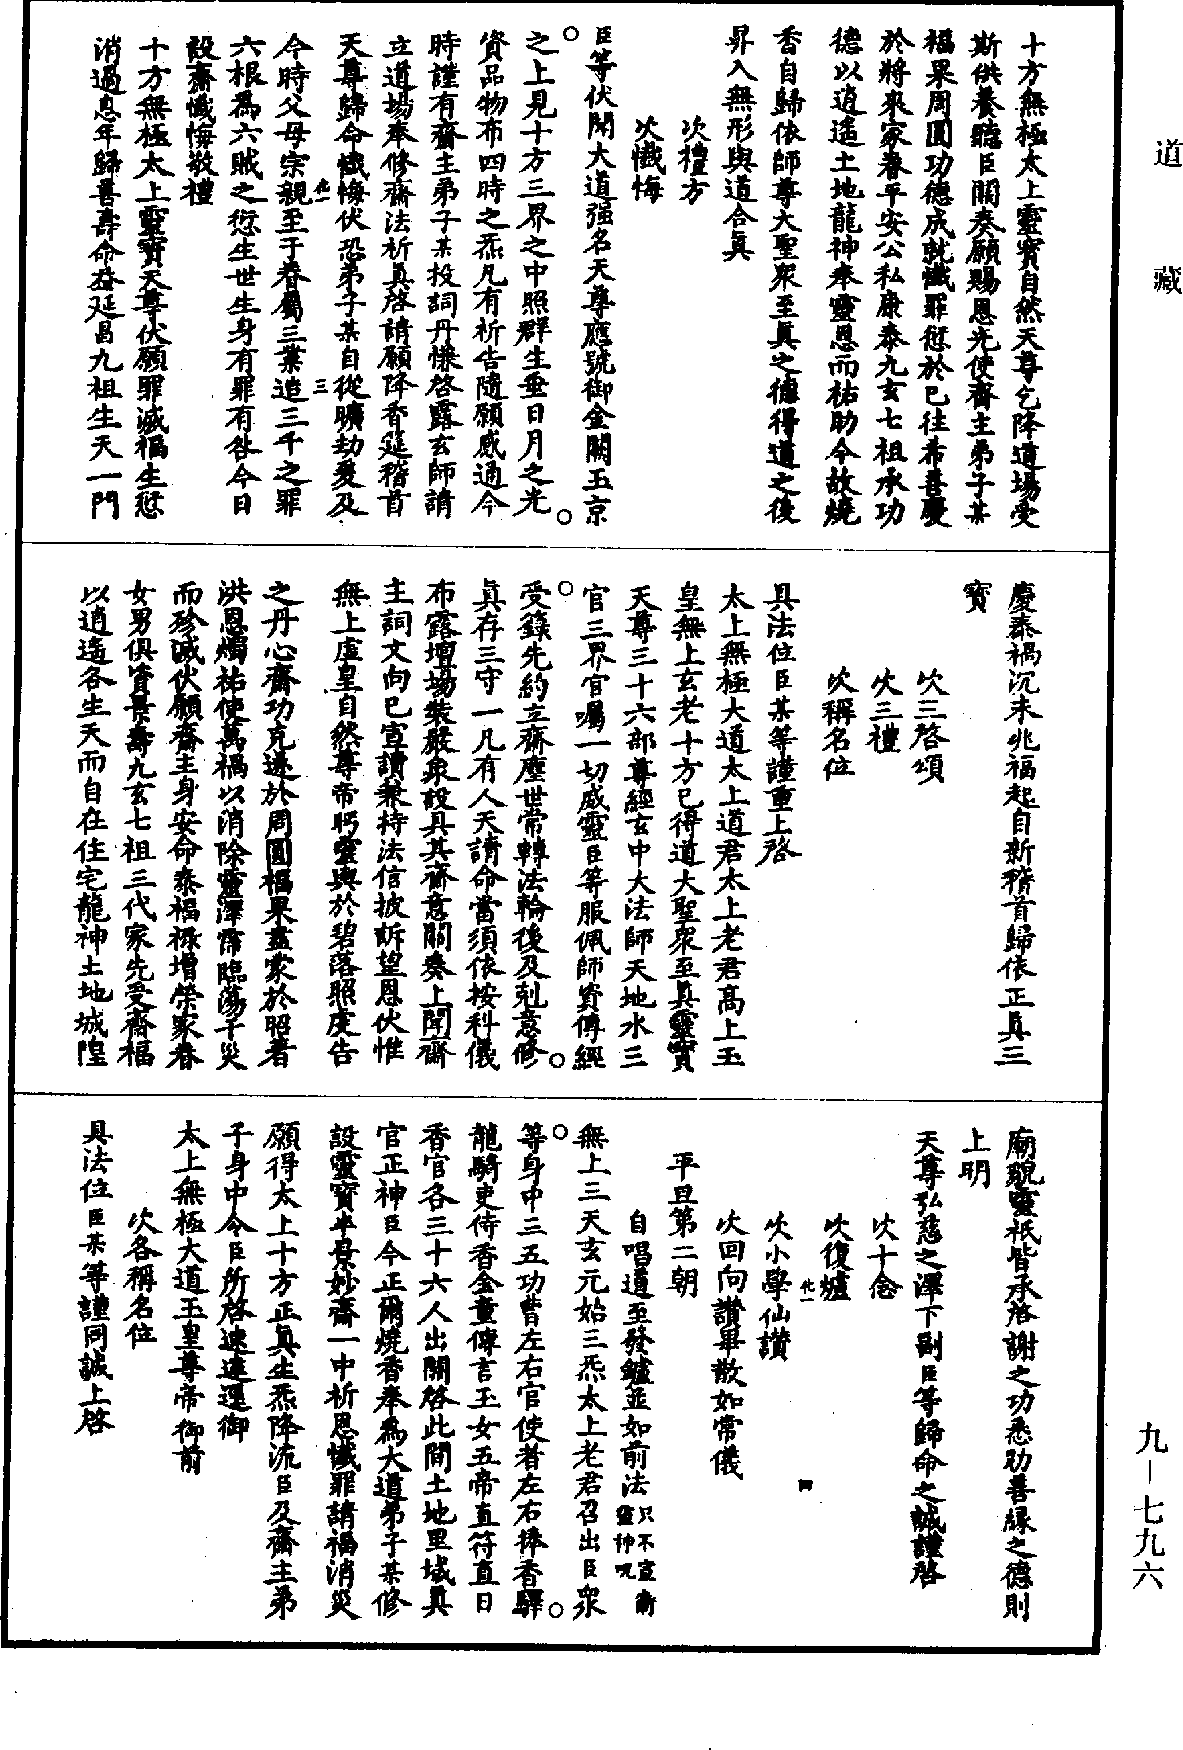 道藏
十方無極太上靈寶自然天尊乞降道場受
斯供養聽臣關奏願賜恩光使齋主弟子某
福果周圓功德成就懺罪愆於已往希善慶
於將來家眷平安公私康泰九玄七祖承功
德以逍遙土地龍神奉靈恩而祐助今故燒
香自歸依師尊大聖衆至真之德得道之後
昇入無形與道合真
次禮方
次懺悔
臣等伏聞大道强名天尊應號御金闕玉京
之上見十方三界之中照群生垂日月之光
資品物布四時之炁凡有祈告隨願感通今
時謹有齋主弟子某投詞丹慊啓露玄師請
立道場奉修齋法祈真啓請願降香筵稽首
天尊歸命懺悔伏恐弟子某自從曠劫爰及
今時父母宗親至于眷屬三業造三千之罪
六根爲六賊之愆生世生身有罪有咎今日
設齋懺悔敬禮
十方無極太上靈寶天尊伏願罪滅福生愆
消過息年歸善壽命益延昌九祖生天一門
慶泰禍沉未兆福起自新稽首歸依正真三
寶
次三啓頌
次三禮
次稱名位
具法位臣某等謹重上啓
太上無極大道太上道君太上老君高上玉
皇無上玄老十方已得道大聖衆至真靈寶
天尊三十六部尊經玄中大法師天地水三
官三界官屬一切威靈臣等服佩師資傳經
受籙先約立齋塵世常轉法輪後及剋意修
真存三守一凡有人天請命當須依按科儀
布露壇場裝嚴衆設具其齋意關奏上聞齋
主詞文向已宣讀兼持法信披訴望恩伏惟
無上虛皇自然尊帝眄靈輿於碧落照虔告
之丹心齋功克遂於周圓福果盡蒙於昭著
洪恩燭祐使萬禍以消除靈澤霈臨蕩千災
而殄滅伏願齋主身安命泰福祿增榮家眷
女男俱資景壽九玄七祖三代家先受齋福
以逍遙各生天而自在住宅龍神土地城隍
廟貌靈祇皆承洛謝之功悉助善緣之德則
上明
天尊弘慈之澤下副臣等歸命之誠謹啓
次十念
次復爐
次小學仙讚
次回向讚畢散如常儀
平旦第二朝
自唱道至發鑪並如前法只不宣衛靈神呪
無上三天玄元始三炁太上老君召出臣衆
等身中三五功曹左右官使者左右捧香驛
龍騎吏侍香金童傳言玉女五帝直符直日
香官各三十六人出關啓此間土地里域真
官正神臣今正爾燒香奉爲大道弟子某修
設靈寶半景妙齋一中祈恩懺罪請福消災
願得太上十方正真生炁降流臣及齋主弟
子身中今臣所啓速達逕御
太上無極大道玉皇尊帝御前
次各稱名位
具法位臣某等謹同誠上啓
九－七九六